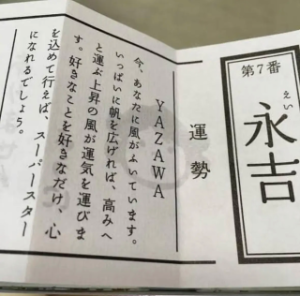 第7番
えい
永吉
運勢
YAZAWA
今、あなたに風がふいています。
いっぱいに帆を広げれば、高みへ
と運ぶ上昇の風が運気を運びま
す。好きなことを好きなだけ、心
を込めて行えば、スーパースター
になれるでしょう。